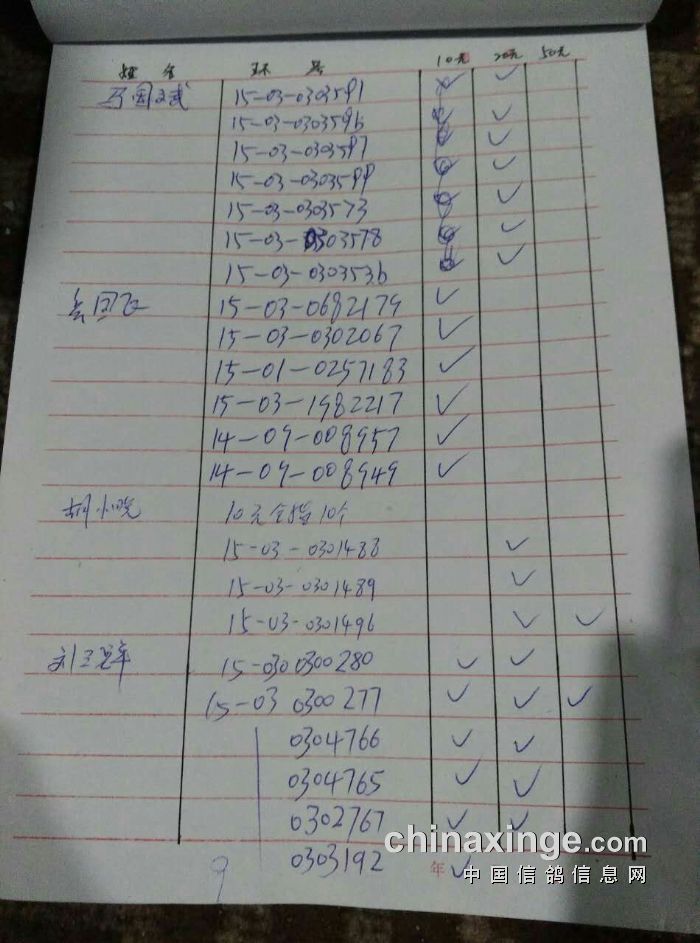 姓名 环号 10元 20元 50元
15-03-0303591 ✓ ✓
15-03-0303596 ✓ ✓
15-03-0303597 ✓ ✓
15-03-0303599 ✓ ✓
15-03-0303573 ✓ ✓
15-03-0303578 ✓ ✓
15-03-0303536 ✓ ✓
15-03-0682179 ✓
15-03-0302067 ✓
15-01-0257183 ✓
15-03-1982217 ✓
14-09-008957 ✓
14-09-008949 ✓
胡小晓 10元全指10个
15-03-0301488 ✓
15-03-0301489 ✓
15-03-0301496 ✓ ✓
15-030300280 ✓ ✓
15-03 0300277 ✓ ✓ ✓
0304766 ✓ ✓
0304765 ✓ ✓
0302767 ✓ ✓
9 0303192 年 ✓
chinaxinge.com
中国信鸽信息网